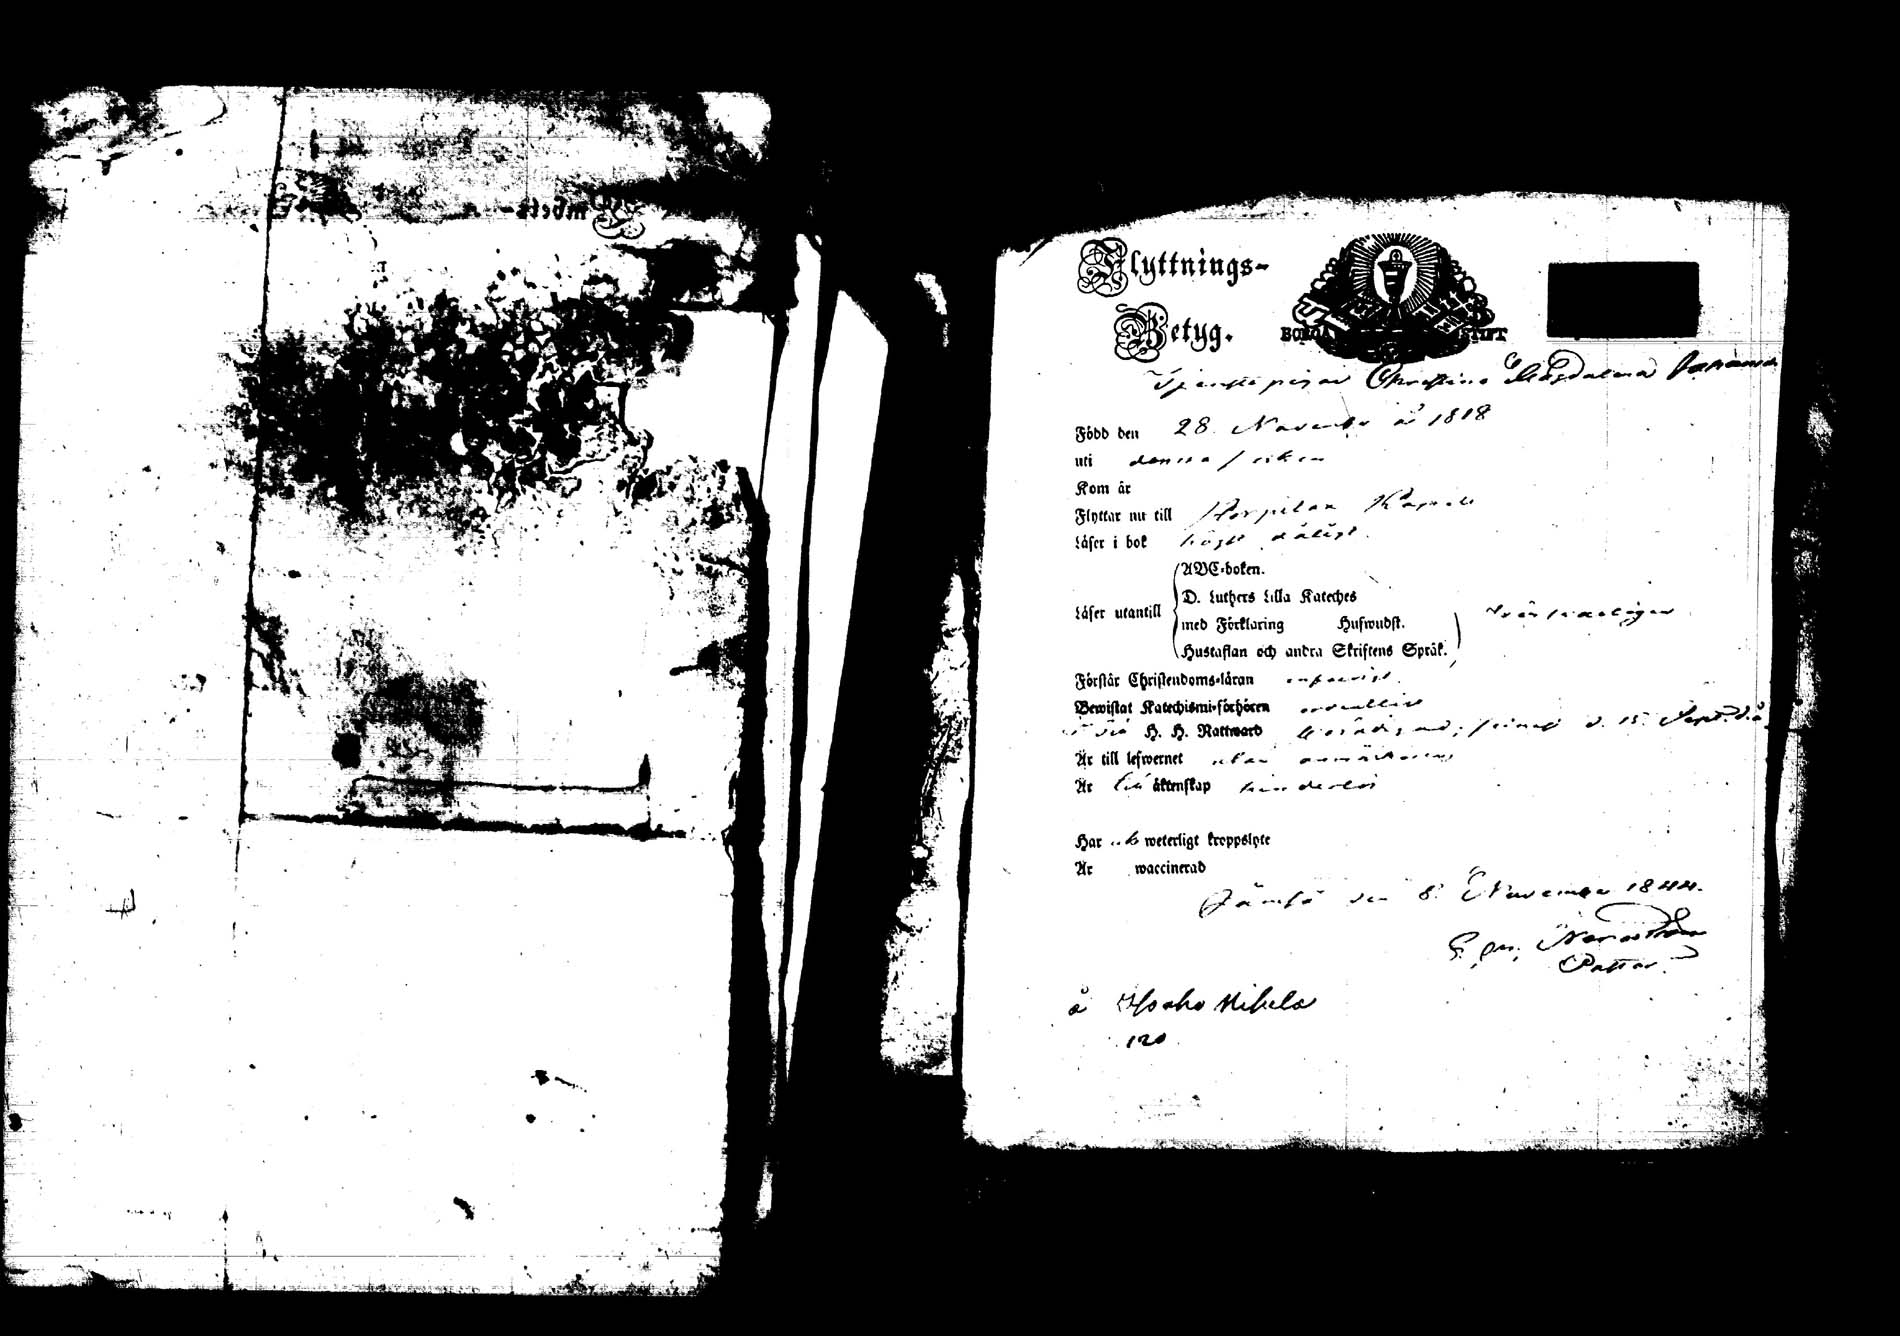 Flyttnings-
Betyg.
BORGÅ STIFT
Tjenstepigan Christina Magdalena
Född den 28. November år 1818
uti denna socken
Kom år
Flyttar nu till Kapell
Läser i bok högst dåligt.
Läser utantill
ABC-boken.
D. Luthers Lilla Kateches
med Förklaring Hufwudst.
Hustaflan och andra Skriftens Språk.
Förstår Christendoms-läran enfaldigt.
Bewistat Katechismi-förhören ordentligt
H. H. Nattward begådt, senast d. 15. Sept. d. å.
Är till lefwernet utan anmärkning
Är till äktenskap hinderlös
Har weterligt kroppslyte
Är waccinerad
Jämsä den 8. November 1844.
Pastor.
å Mikela
120